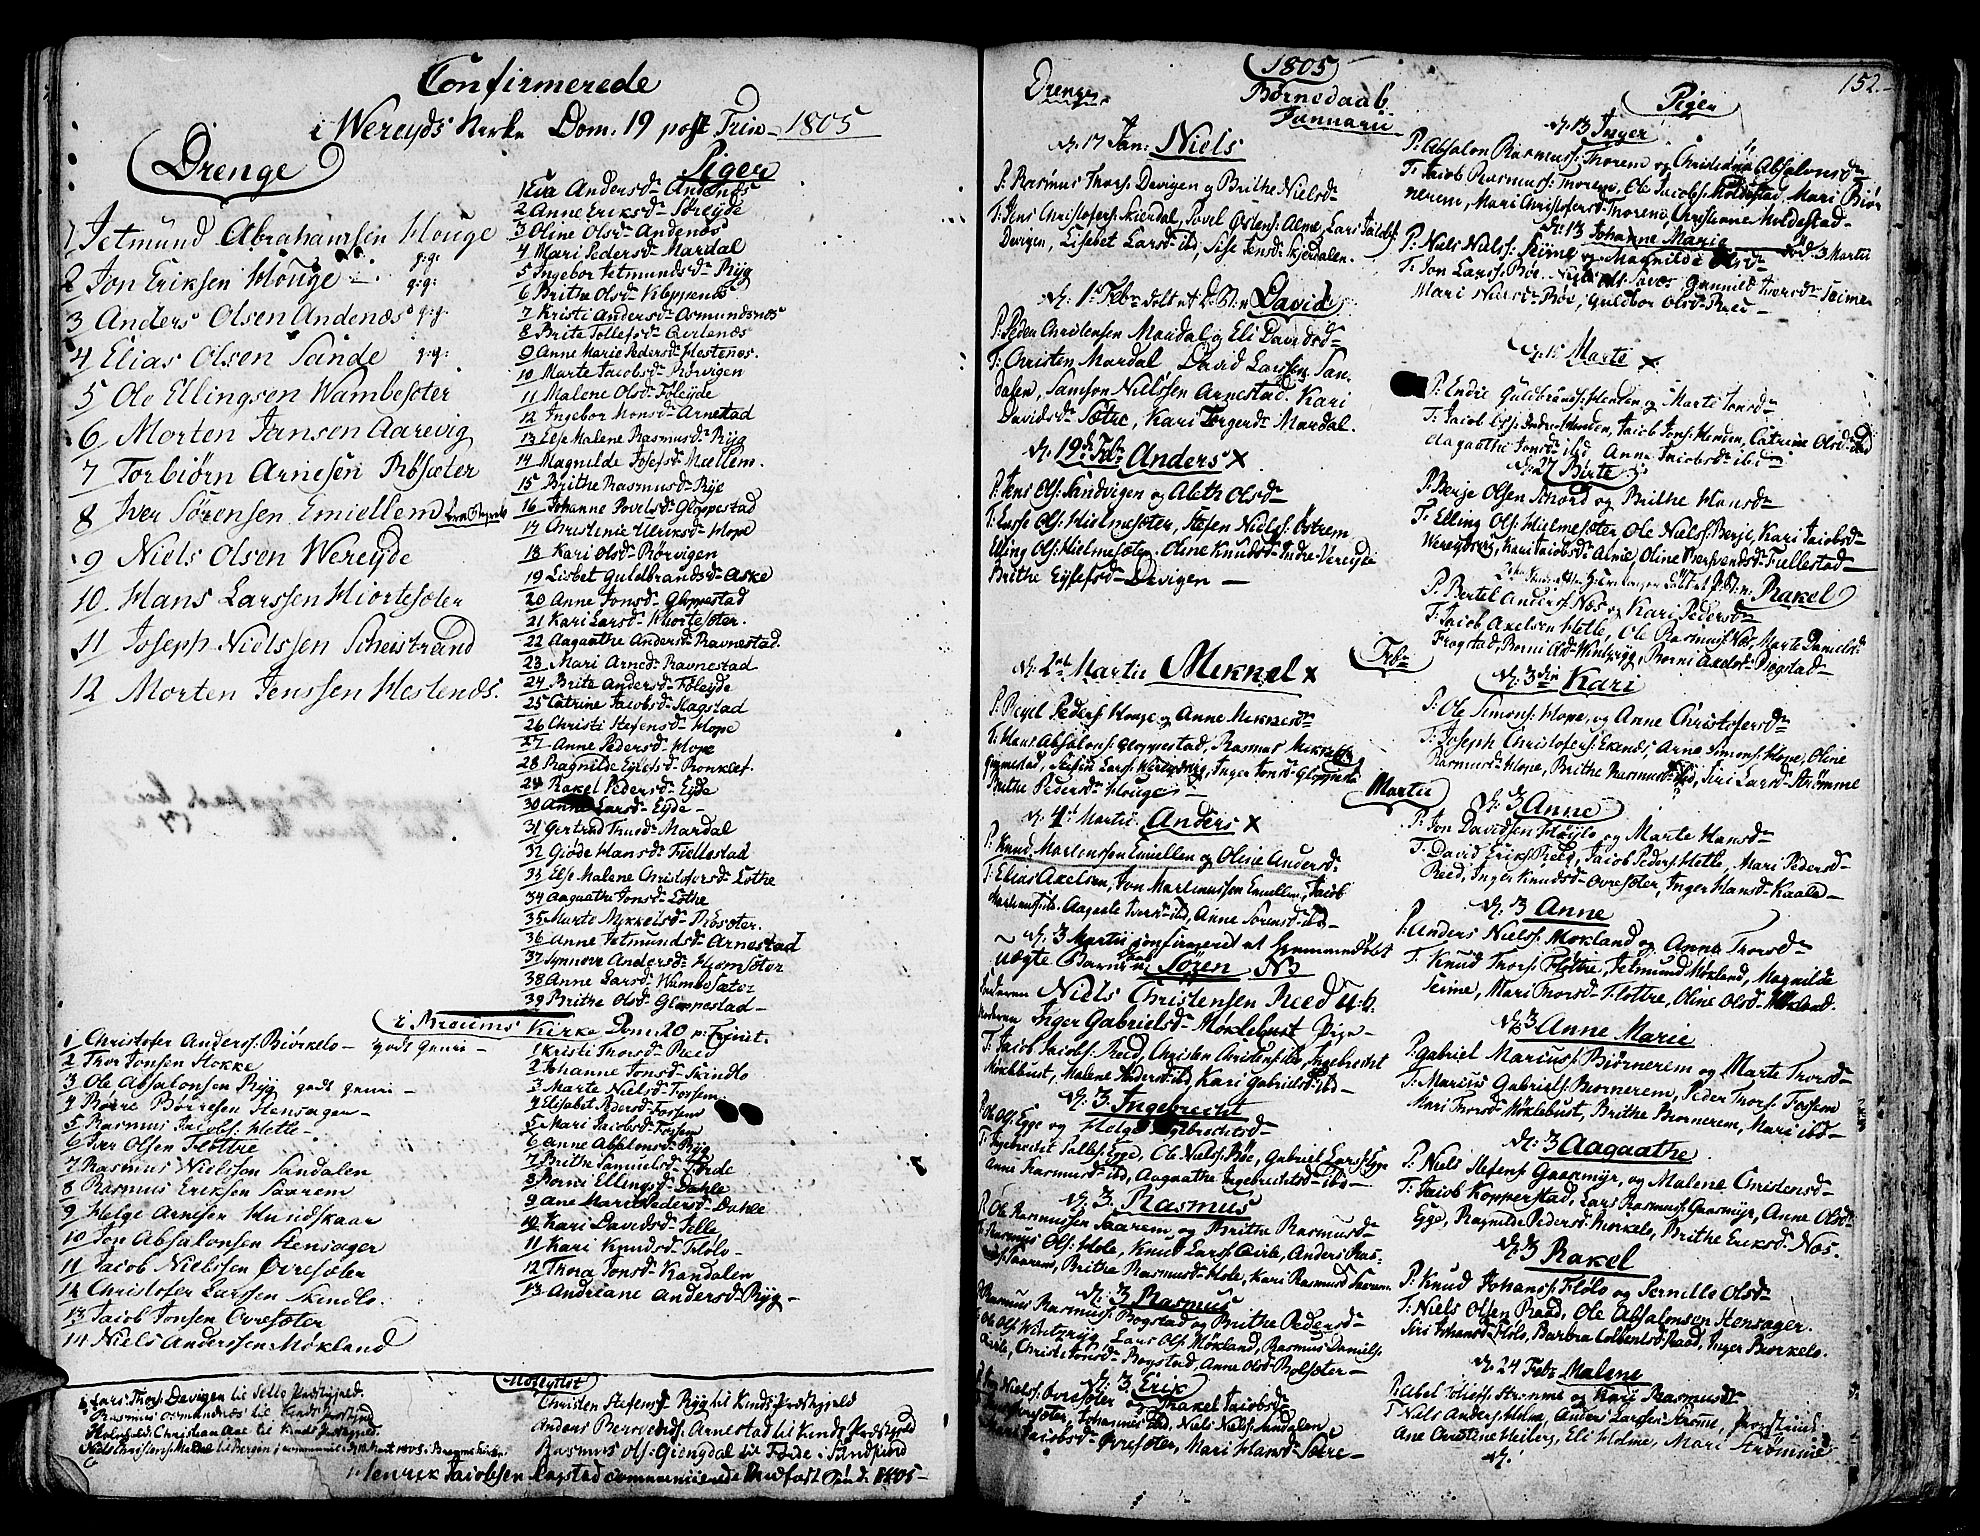 Confirmerede
i Wereyds Kirke Dom. 19 post Trin - 1805
Drenge
1 Jetmund Abrahamsen Houge
2 Jon Eriksen Houge g:g:
3 Anders Olsen Andenæs g:g:
4 Elias Olsen Sande g:g:
5 Ole Ellingsen Wambesøter
6 Morten Jansen Aarevig
7 Torbiørn Arnesen Røsæter
8 Iver Sørensen Emiellem
9 Niels Olsen Wereyde
10. Hans Larssen Hiortesøter
11 Joseph Nielssen Scheistrand
12 Morten Jenssen Hestenæs.
Piger
1 Eva Andersd. Andenæs
2 Anne Eriksd. Søreyde
3 Oline Olsd. Andenæs
4 Mari Pedersd. Mardal
5 Ingebor Jetmundsd. Ryg
6 Brithe Olsd. Kleppenæs
7 Kristi Andersd. Osmundsnæs
8 Brite Tollefsd. Qvilenæs
9 Anne Marie Pedersd. Hestenæs.
10 Marte Jacobsd. Rørvigen
11 Malene Olsd. Føleyde
12 Ingebor Monsd. Arnestad
13 Else Malene Rasmusd. Ryg
14 Magnilde Josefsd. Mællem.
15 Brithe Rasmusd. Rye
16 Johanne Povelsd. Gloppestad
17 Christenie Ulriksd. Hope
18 Kari Olsd. Rørvigen
19 Lisbet Guldbrandsd. Aske
20 Anne Jonsd. Gloppestad
21 Kari Larsd. Hiortesøter.
22 Aagaathe Andersd. Ravnestad
23 Mari Arned. Ravnestad
24 Brite Andersd. Føleyde
25 Catrine Jacobsd. Hagstad
26 Christi Stefensd. Hope
27 Anne Pedersd. Hope
28 Ragnilde Eylefsd. Ronklef.
29 Rakel Pedersd. Eyde
30 Anne Larsd. Eyde
31 Gertrud Thued. Mardal
32 Giøde Hansd. Fiellestad
33 Else Malene Christofersd. Lothe
34 Aagaathe Jonsd. Lothe
35 Marte Mikkelsd. Røsøter.
36 Anne Jetmundsd. Arnestad
37 Synnove Andersd. Hiemsøter
38 Anne Larsd. Wambesæter
39 Brithe Olsd. Gloppestad
i Breums Kirke Dom. 20 p: Trinit.
1 Christofer Anderss: Biørkelo - godt gemi -
2 Thor Jonsen Hokke
3 Ole Absalonsen Ryg godt gemi -
4 Børre Børresen Hensagen -
5 Rasmus Jacobs. Hetle -
6 Iver Olsen Flottre
7 Rasmus Nielssen Sandalen
8 Rasmus Eriksen Saarem
9 Helge Arnesen Hundskaar
10 Jon Absalonsen Hensager
11 Jacob Nielssen Øvresøter
12 Christofer Larssen Skindlo.
13 Jacob Jonsen Ovresøter
14 Niels Anderssen Møkland
1 Kristi Thorsd. Reed
2 Johanne Jonsd. Skindlo
3 Marte Nielsd. Fossem
4 Elisabet Pedersd. Fossem
5 Mari Jacobsd. Fossem
6 Anne Absalonsd. Ryg
7 Brithe Samuelsd. Førde
8 Borni Ellingsd. Dahle
9 Ane Marie Pedersd. Dahle
10 Kari Davidsd. Felle
11 Kari Knudsd. FløLo -
12 Thora Jonsd. Kandalen
13 Andriane Andersd. Ryg -
Lars Thors: Devigen til Selle Præstegjeld.
Udflyttet
Christen Stefens: Ryg til Kinds Præstgjeld
Anders Arnestad til Kinds Præstgjeld
Rasmus Ols: Giengdal til Førde i Sundfiord
Henrik Jacobsen Ragstad 1805 -
152.
1805
Børnedaab
Januarii
Drenge
d. 17 Jan: Niels
P. Rasmus Thors. Devigen og Brithe Nielsd.
T. Jens Christofers. Skierdal, Povel Østens. Alme, Lars Jacobs:
Devigen, Lisebet Larsd. ibd, Sise Jensd. Skjerdalen.
d. 1. Febr. døbt David
P. Peder Christensen Maudal og Eli Davidsd.
T. Christen Mardal David Larssen San-
dalen, Samson Nielssen Arnestad. Kari
Davidsd. Sætre, Kari Torgerd. Mardal.
d. 19 Feb. Anders X
P. Jens Ols: Sandvigen og Aleth Olsd.
T. Lasse Ols: Hielmesøter, Stefen Niels. Østrem
Elling Ols: Hielmesøter. Oline Knudsd. Indre-Vereyde
Brithe Eylefsd. Devigen -
Febr
d. 2 Martii Mikkel X
P. Reyel Peders: Houge og Anne Mikkelsd.
T. Hans Absalons. Gloppestad, Rasmus Mikkels.
Brithe Pedersd. Houge -
Martii
d. 4 Martii. Anders X
P. Knud Martenssen Emiellem og Oline Andersd.
T. Elias Axelsen, Jon Martinussen Emiellem, Jacob
Aagaate Iversd. ibd, Anne Sørensd. ibd -
d. 3 Martii confirmeret at hjemmedøbt
uægte Barn Søren N3
Niels Christensen Reed u.k.
Inger Gabrielsd. Møklebust Pige -
T. Jacob Jacobs. Reed, Christen Christens. ibd, Ingebrecht
Møklebust, Malene Andersd. ibd, Kari Gabrielsd. ibd -
d. 3. Ingebrecht
P. Ole Ols. Egge og Helge Ingebrechtsd.
T. Ingebrecht Salles. Egge, Ole Niels. Bøe, Gabriel Lars. Egge
Anne Rasmusd. ibd, Aagaathe Ingebrechtsd. ibd -
d. 3. Rasmus
P. Ole Rasmussen Saarem, og Brithe Rasmusd.
T. Rasmus Ols: Hole, Knud Lars: Qvile, Anders Ras-
mus. Saarem, Brithe Rasmusd. Hole, Kari Rasmusd. Saarem.
d. 3 Rasmus
Rasmus Rasmuss. Bogstad og Brithe Pedersd.
Ole Ols. Wintzryg, Lars Ols. Møkland, Rasmus Daniels.
Christi Jonsd. Bogstad, Anne Olsd. Bolsøter -
d. 3. Erik
Niels. Øvresøter og Rakel Jacobsd.
Johannes ibd, Niels Niels. Sandalen
Jacobsd. Øvresøter, Mari Hansd. Sætre -
Piger
d. 13 Inger
P. Absalon Rasmuss. Thorem og Absalonsd.
T. Jacob Rasmuss: Thorem, Ole Jacobs. Moldestad, Mari Biør
nerem, Mari Christofersd. Thorem, Christiane Moldestad -
d. 13 Johanne Marie - d. 3 Martii
P. Niels Niels. Seime og Magnilde Olsd.
T. Jon Larss. Bøe, Gunnild Iversd. Seime
Mari Nielsd. Bøe, Guldbor Olsd. Reed -
d. 15 Marte X
P. Endre Guldbrands. Henden og Marte Jonsd.
T. Jacob Ols: Indre Henden, Jacob Jons. Henden, Catrine Olsd. ibd
Aagaathe Jonsd. ibd Anne Jacobsd. ibid
d. 27 Birte
P. Berje Olsen Skiord og Brithe Hansd.
T. Elling Ols: Hielmesøter, Ole Niels. Berje, Kari Jacobsd.
Wereydsvig, Kari Jacobsd. Alme, Oline Bersvendsd. Fiellestad -
Rakel
P. Bertel Anders. Nøs og Kari Pedersd.
T. Jacob Axelsen Hetle, Ole Rasmus. Nøs, Marte Danielsd.
Frogstad, Borni Olsd. Wintzryg, Borni Axelsd. Bogstad -
d. 3 Kari
P. Ole Simons: Hope, og Anne Christofersd.
T. Joseph Christofers. Ekenæs, Arne Simons. Hope, Oline
Rasmusd. Hope, Brithe Rasmusd. ibd, Siri Larsd. Strømme
d. 3 Anne
P. Jon Davidsen Føllo og Marte Hansd.
T. David Eriks. Reed, Jacob Peders. Hetle, Mari Pedersd.
Reed, Inger Knudsd. Ovresøter, Inger Hansd. Kaald -
d. 3 Anne
P. Anders Niels. Møkland og Anna Thorsd.
T. Knud Thors. Flottre, Jetmund Møkland, Magnilde
Seime, Mari Thorsd. Flottre, Oline Olsd. Møkland.
d. 3 Anne Marie
P. Gabriel Mariuss. Biørnerem og Marte Thorsd.
T. Marius Gabriels. Biornerem, Peder Thors. Fossem
Mari Thorsd. Møklebust, Brithe Biornerem, Mari ibd -
d. 3 Aagaathe
P. Niels Stefens. Gaasmyr, og Malene Christensd.
T. Jacob Kopperstad, Lars Rasmus. Gaasmyr, Anne Olsd.
Egge, Ragnilde Pedersd. Biørkelo, Brithe Eriksd. Nøs.
d. 3 Rakel
P. Knud Johans. Fløllo og Pernille Olsd.
T. Niels Olsen Reed, Ole Absalonsen Hensager.
Siri Johansd. Fløllo, Barbra Colbentsd. Raad, Inger Biørkelo.
d. 24 Febr. Malene
P. Abel Tollefs. Stromme og Kari Rasmusd.
T. Niels Anders. Holme, Anders Larssen Strøme, Provstinde
Ane Christine Heiberg, Eli Holme, Mari Strømme
d.